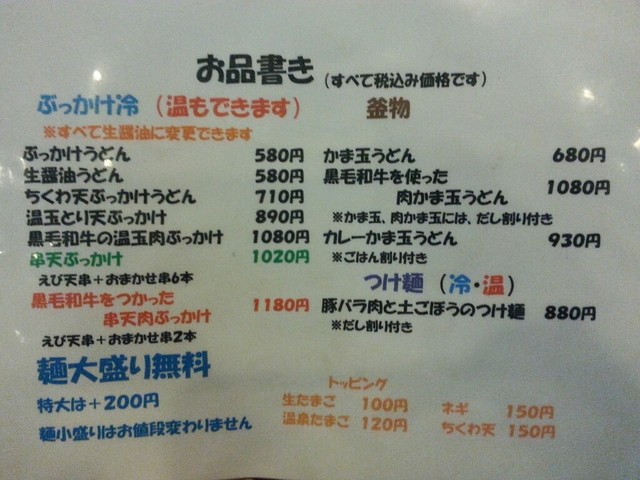 お品書き（すべて税込み価格です）
ぶっかけ冷（温もできます）
※すべて生醤油に変更できます
ぶっかけうどん 580円
生醤油うどん 580円
ちくわ天ぶっかけうどん 710円
温玉とり天ぶっかけ 890円
黒毛和牛の温玉肉ぶっかけ 1080円
串天ぶっかけ 1020円
えび天串＋おまかせ串6本
黒毛和牛をつかった
串天肉ぶっかけ 1180円
えび天串＋おまかせ串2本
麺大盛り無料
特大は＋200円
麺小盛りはお値段変わりません
釜物
かま玉うどん 680円
黒毛和牛を使った
肉かま玉うどん 1080円
※かま玉、肉かま玉には、だし割り付き
カレーかま玉うどん 930円
※ごはん割り付き
つけ麺（冷・温）
豚バラ肉と土ごぼうのつけ麺 880円
※だし割り付き
トッピング
生たまご 100円
温泉たまご 120円
ネギ 150円
ちくわ天 150円